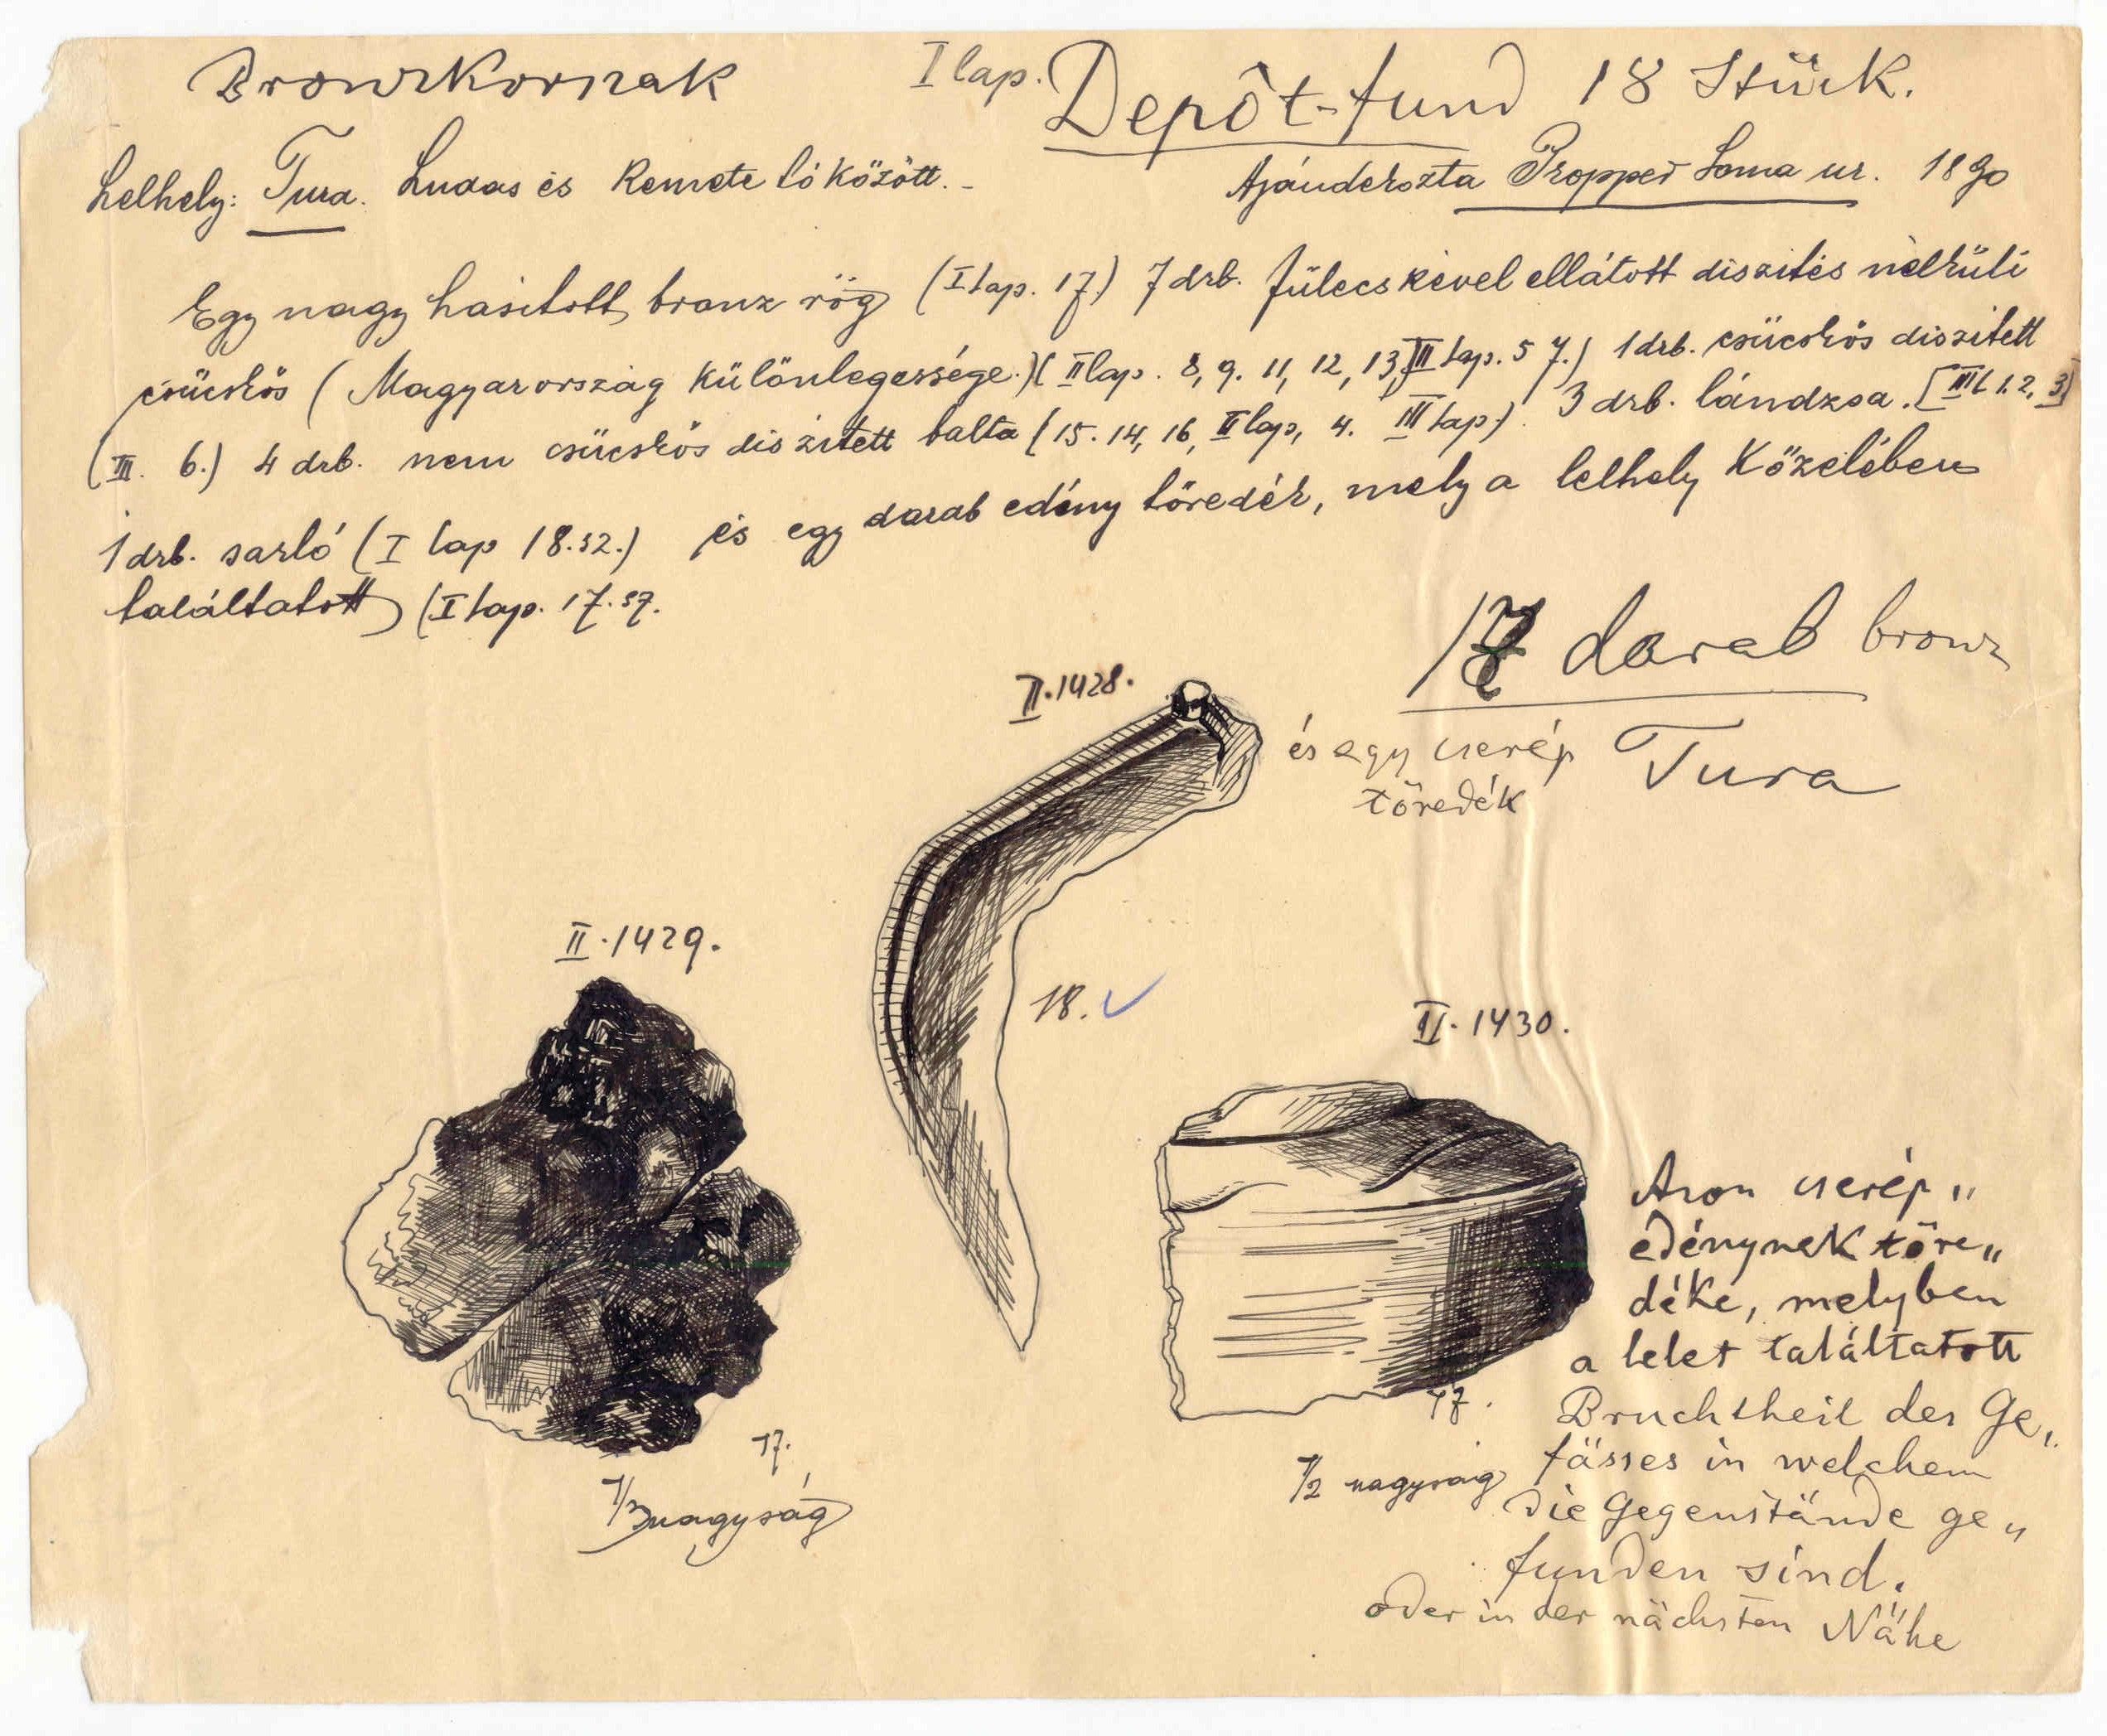 Bronzkornak
I lap.
Depôt-fund 18 Stück.
Lelhely: Tura. Ludas és Remete tó között.-
Ajándékozta Propper Soma ur. 1890
Egy nagy hasitott bronz rög (I lap. 17.) 7 drb. fülecskével ellátott diszités nélküli
csücskös (Magyarország különlegessége.) (II lap. 8, 9. 11, 12, 13, III lap. 5 7.) 1 drb. csücskös diszitett
(III. 6.) 4 drb. nem csücskös diszitett balta (15. 14, 16, II lap, 4. III lap.) 3 drb. lándzsa. [III l. 1. 2, 3]
1 drb. sarló (I lap 18.sz.) és egy darab edény töredék, mely a lelhely közelében
találtatott (I lap. 17.sz.
darab bronz
és egy cserép Tura
töredék
II. 1428.
18. ✓
II. 1429.
17.
1/3 nagyság
II. 1430.
17.
1/2 nagyság
Azon cserép„
edénynek töre„
déke, melyben
a lelet találtatott
Bruchtheil des Ge„
fässes in welchem
die Gegenstände ge„
funden sind.
oder in der nächsten Nähe